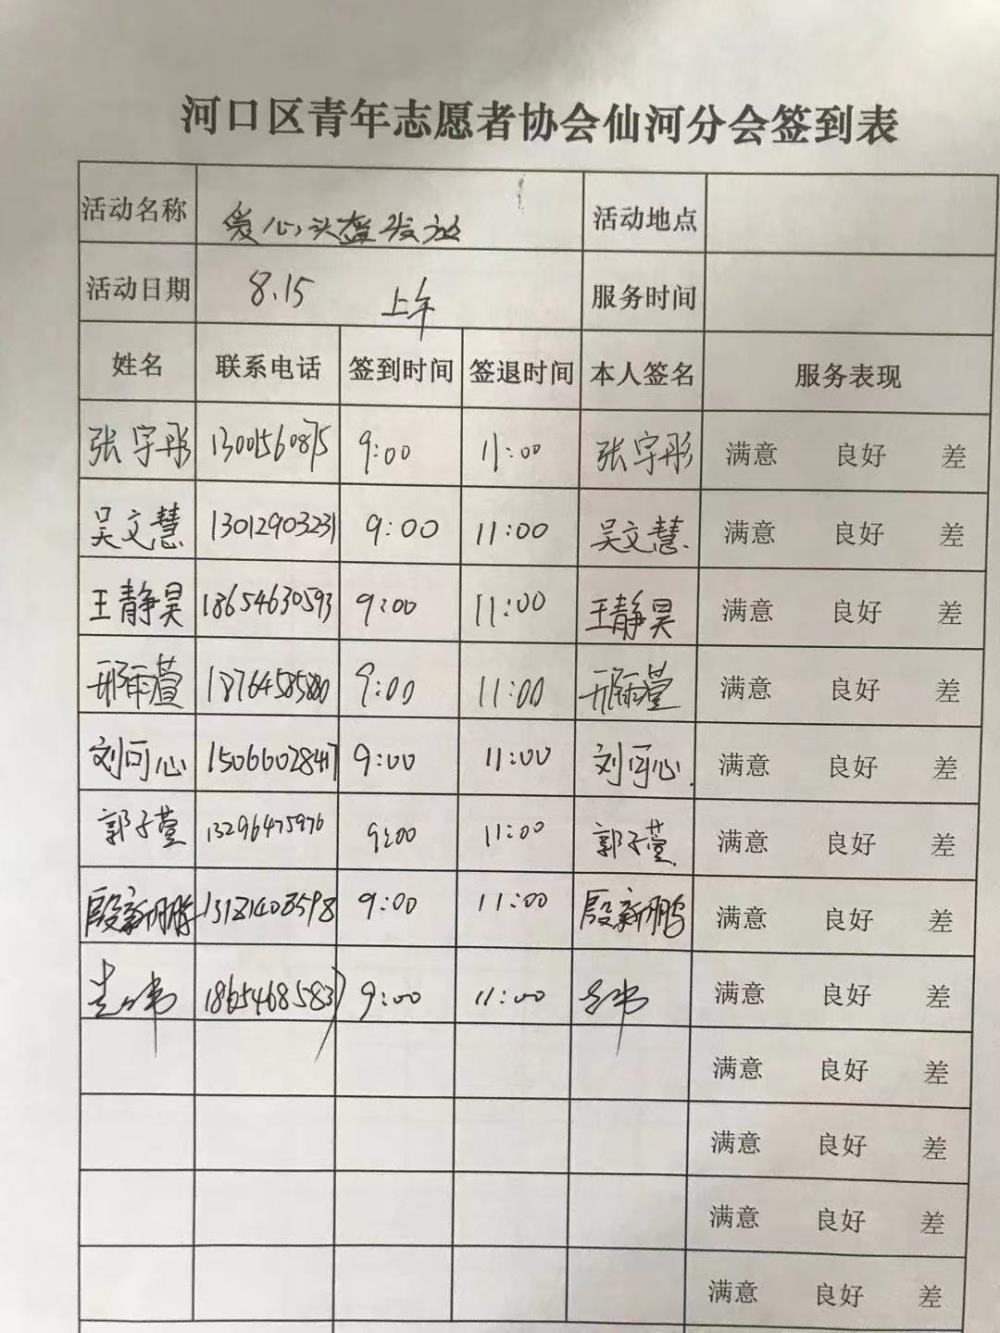 河口区青年志愿者协会仙河分会签到表
活动名称 爱心头盔发放 活动地点
活动日期 8.15 上午 服务时间
姓名 联系电话 签到时间 签退时间 本人签名 服务表现
张宇彤 13001560875 9:00 11:00 张宇彤 满意 良好 差
吴文慧 13012903231 9:00 11:00 吴文慧 满意 良好 差
王静昊 18654630593 9:00 11:00 王静昊 满意 良好 差
邢雨萱 18764585880 9:00 11:00 邢雨萱 满意 良好 差
刘可心 15066028417 9:00 11:00 刘可心 满意 良好 差
郭子萱 13296475976 9:00 11:00 郭子萱 满意 良好 差
殷新鹏 13181408598 9:00 11:00 殷新鹏 满意 良好 差
18654685837 9:00 11:00 满意 良好 差
满意 良好 差
满意 良好 差
满意 良好 差
满意 良好 差